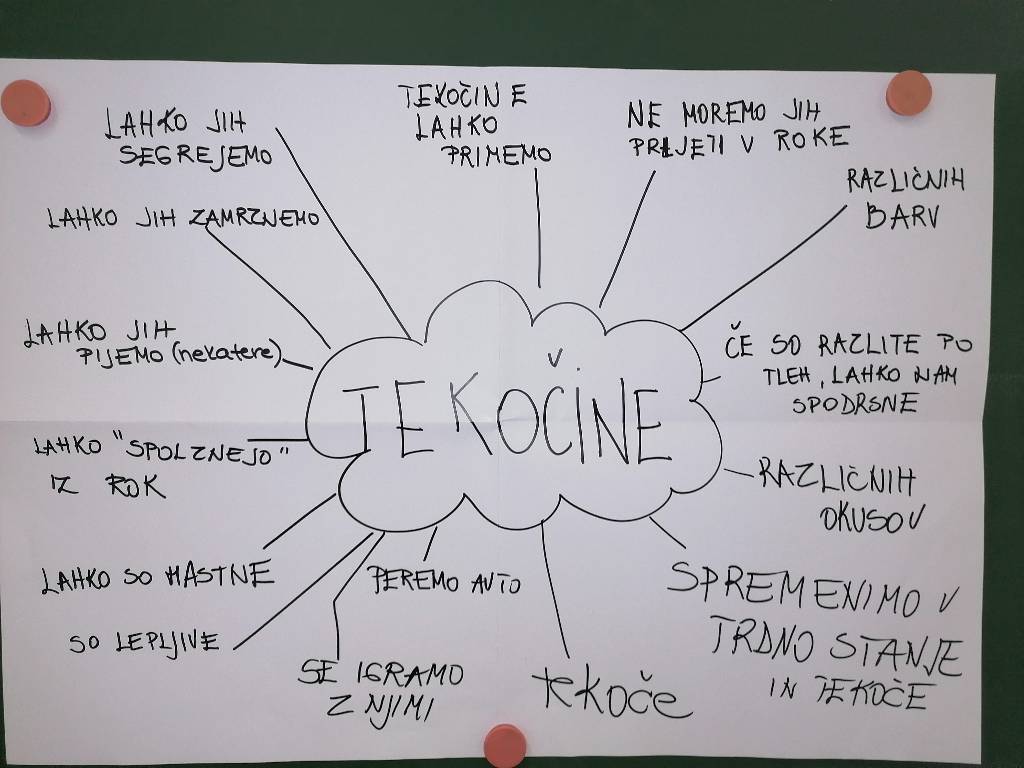 TEKOČINE
LAHKO JIH
SEGREJEMO
TEKOČINE
LAHKO
PRIMEMO
NE MOREMO JIH
PRIJETI V ROKE
RAZLIČNIH
BARV
LAHKO JIH ZAMRZNEMO
LAHKO JIH
PIJEMO (nekatere)
ČE SO RAZLITE PO
TLEH, LAHKO NAM
SPODRSNE
LAHKO "SPOLZNEJO"
IZ ROK
RAZLIČNIH
OKUSOV
LAHKO SO MASTNE
PEREMO AVTO
SPREMENIMO V
TRDNO STANJE
IN TEKOČE
SO LEPLJIVE
SE IGRAMO
Z NJIMI
tekoče